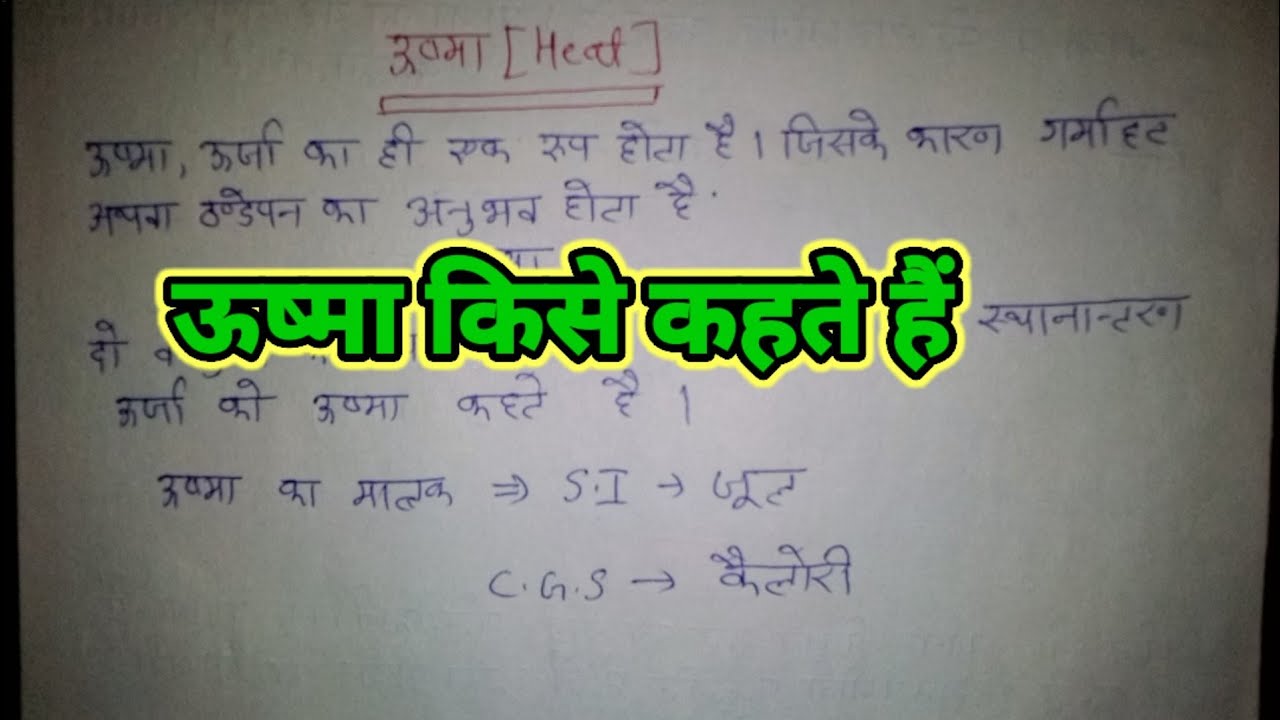 ऊष्मा [Heat]
ऊष्मा, ऊर्जा का ही एक रुप होता है । जिसके कारण गर्माहट
अथवा ठण्डेपन का अनुभव होता है.
या
ऊष्मा किसे कहते हैं
दो स्थानान्तरण
ऊर्जा को ऊष्मा कहते है ।
ऊष्मा का मात्रक ⇒ S.I → जूल
C.G.S → कैलोरी